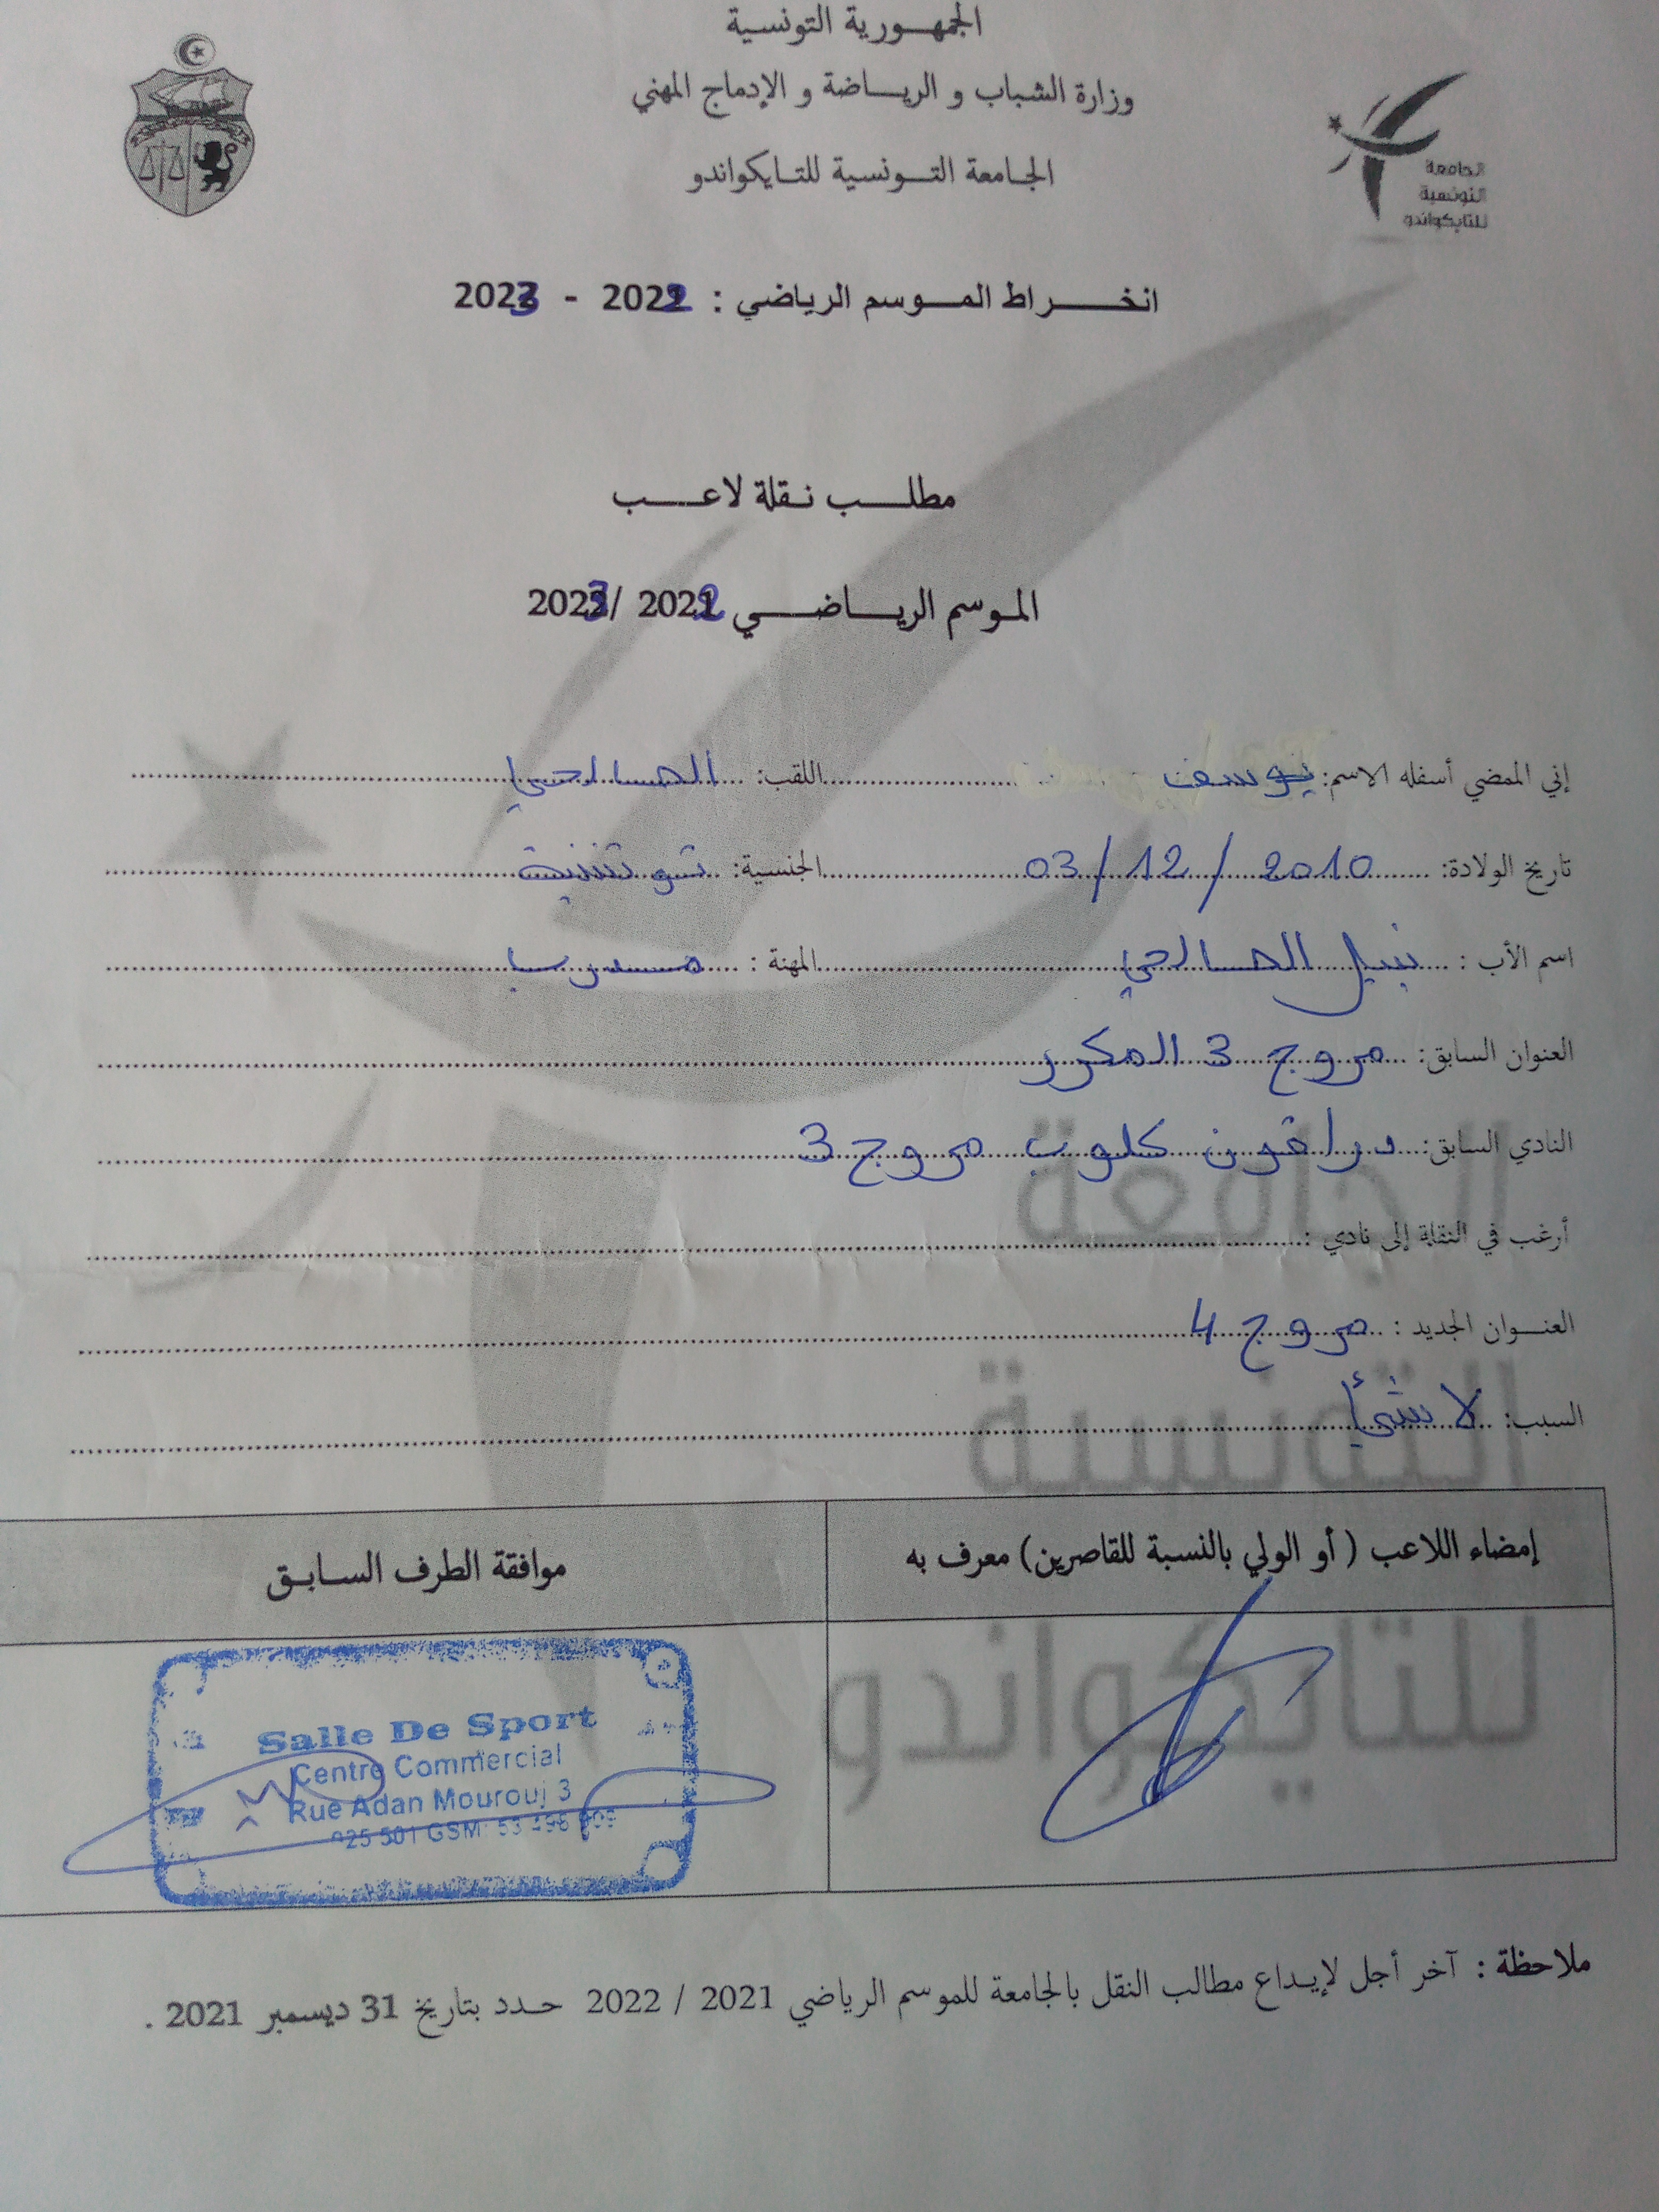 الجمهورية التونسية
وزارة الشباب و الرياضة و الإدماج المهني
الجامعة التونسية للتايكواندو
الجامعة
التونسية
للتايكواندو
انخراط الموسم الرياضي : 2022 - 2023
مطلب نقلة لاعب
الموسم الرياضي 2022 / 2023
إني الممضي أسفله الاسم: يوسف اللقب: الصالحي
تاريخ الولادة: 03/12/2010 الجنسية: تونسية
اسم الأب : نبيل الصالحي المهنة : مدرب
العنوان السابق: مروج 3 المكرر
النادي السابق: دراقون كلوب مروج 3
أرغب في النقلة إلى نادي :
العنوان الجديد : مروج 4
السبب: لا شئ
إمضاء اللاعب ( أو الولي بالنسبة للقاصرين) معرف به
موافقة الطرف السابق
الجامعة
التونسية
للتايكواندو
Salle De Sport
Centre Commercial
Rue Adan Mourouj 3
501 GSM: 53
ملاحظة : آخر أجل لإيداع مطالب النقل بالجامعة للموسم الرياضي 2021 / 2022 حدد بتاريخ 31 ديسمبر 2021 .